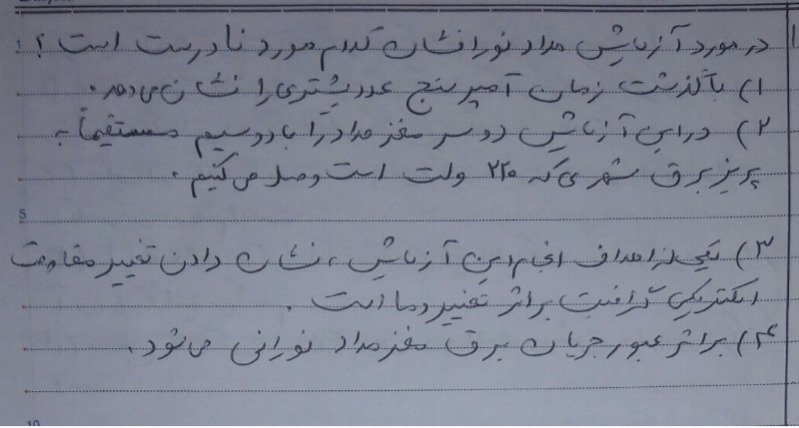 در مورد آزمایش مداد نورافشان کدام مورد نادرست است؟
۱) با گذشت زمان آمپرسنج عدد بیشتری را نشان می‌دهد.
۲) در این آزمایش دو سر مغز مداد را با دو سیم مستقیماً به
پریز برق شهری که ۲۲۰ ولت است وصل می‌کنیم.
5
۳) یکی از اهداف انجام این آزمایش، نشان دادن تغییر مقاومت
الکتریکی گرافیت بر اثر تغییر دما است.
۴) بر اثر عبور جریان برق مغز مداد نورانی می‌شود.
10